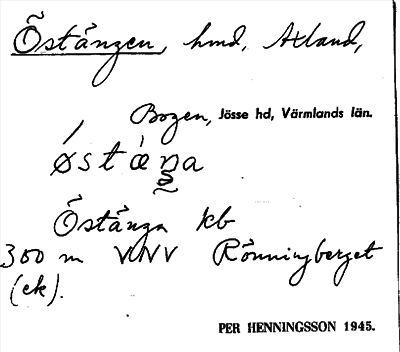 Östängen, hmd, Axland,
Bogen, Jösse hd, Värmlands län.
östæŋa
Östänga kb
300 m VNV Rönningberget
(ek).
PER HENNINGSSON 1945.